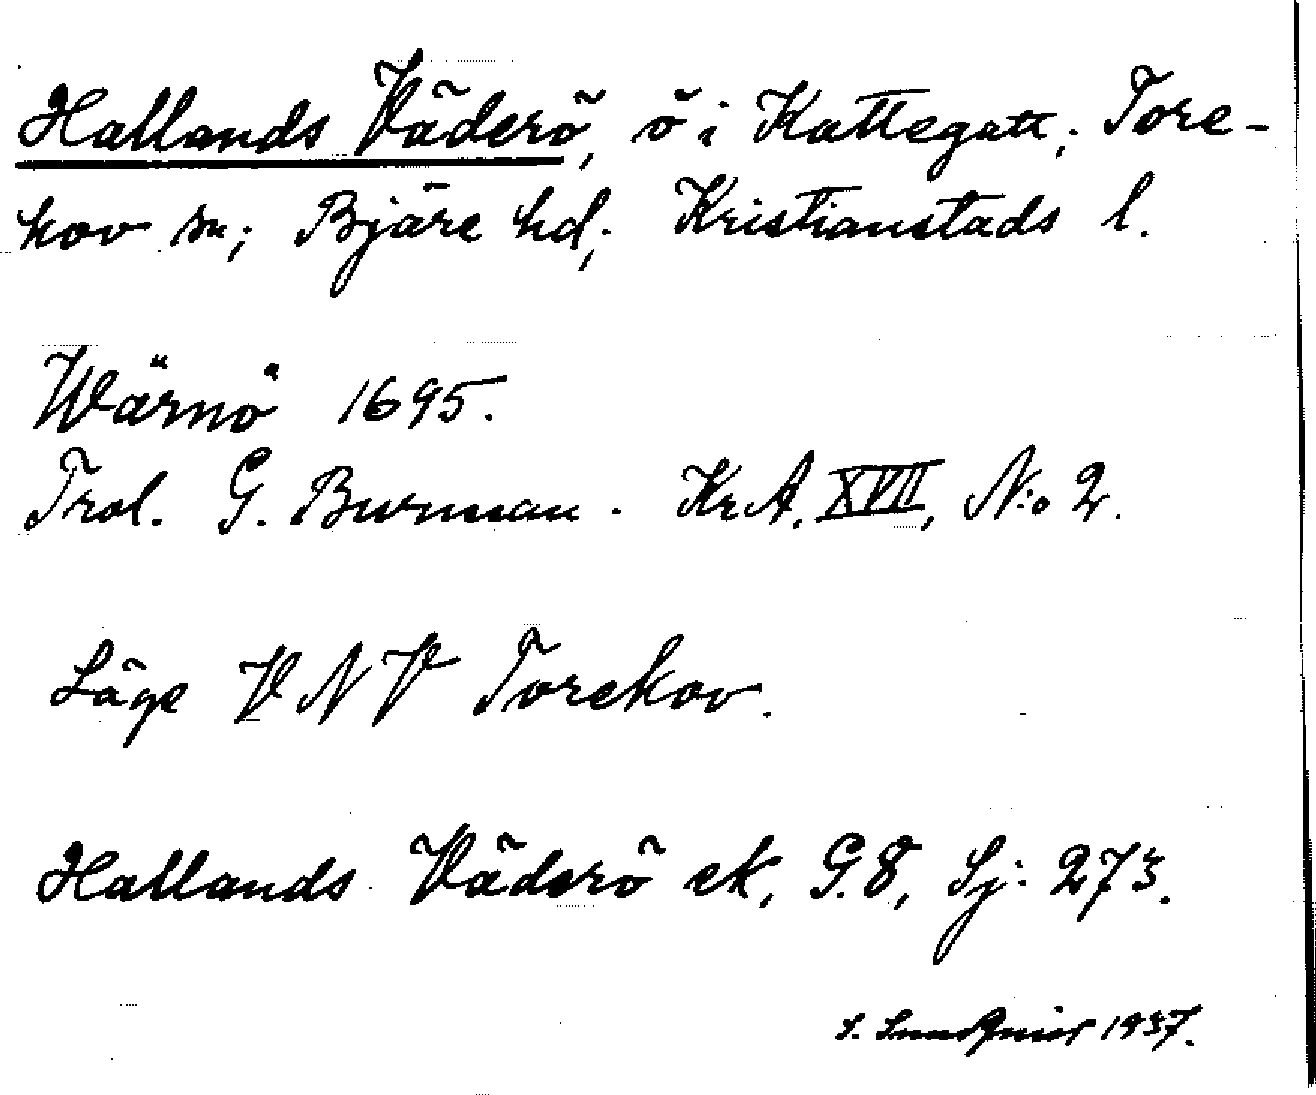 Hallands Väderö, ö i Kattegatt; Tore-
kov sn; Bjäre hd; Kristianstads l.
Wärnö 1695.
Trol. G. Burman. Kr.A. XVII, N:o 2.
Läge VNV Torekov.
Hallands Väderö ek, G.8, Sj: 273.
S. Lundqvist 1937.